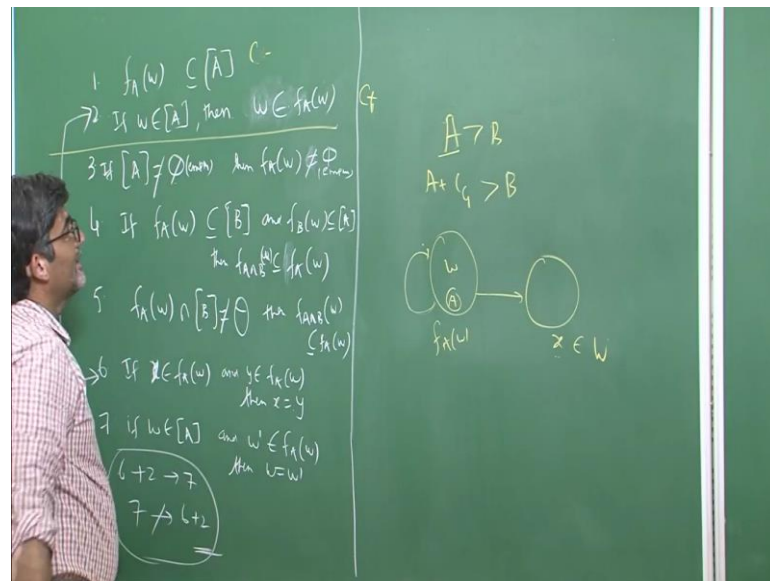 1. f_A(w) ⊆ [A] C-
2. If w∈[A], then w∈ f_A(w) C+
3 If [A] ≠ φ (empty) then f_A(w) ≠ φ (empty)
4 If f_A(w) ⊆ [B] and f_B(w) ⊆ [A]
then f_A∧B(w) ⊆ f_A(w)
5 f_A(w) ∩ [B] ≠ θ then f_A∧B(w)
⊆ f_A(w)
6 If x∈f_A(w) and y∈ f_A(w)
then x=y
7 if w∈[A] and w'∈f_A(w)
then w=w'
6+2 → 7
7 ↛ 6+2
A > B
A + C_4 > B
w
A
f_A(w)
x ∈ W